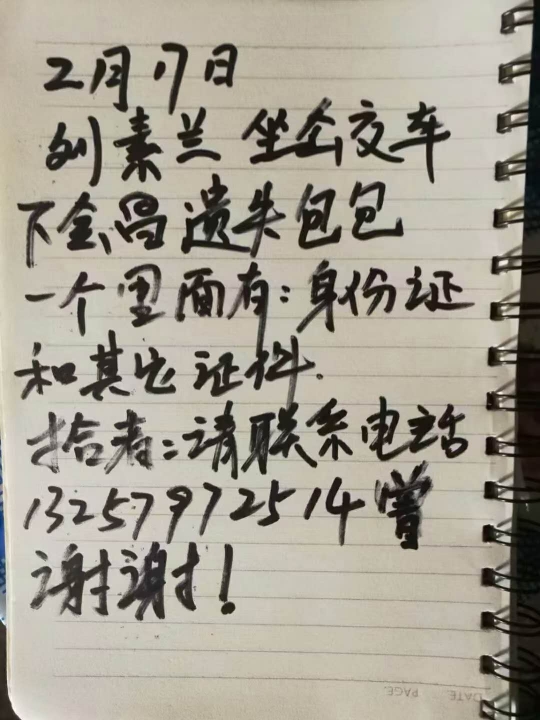 2月17日
刘素兰 坐公交车
下会昌遗失包包
一个里面有:身份证
和其它证件.
拾者:请联系电话
13257972514曾
谢谢!
DATE PAGE